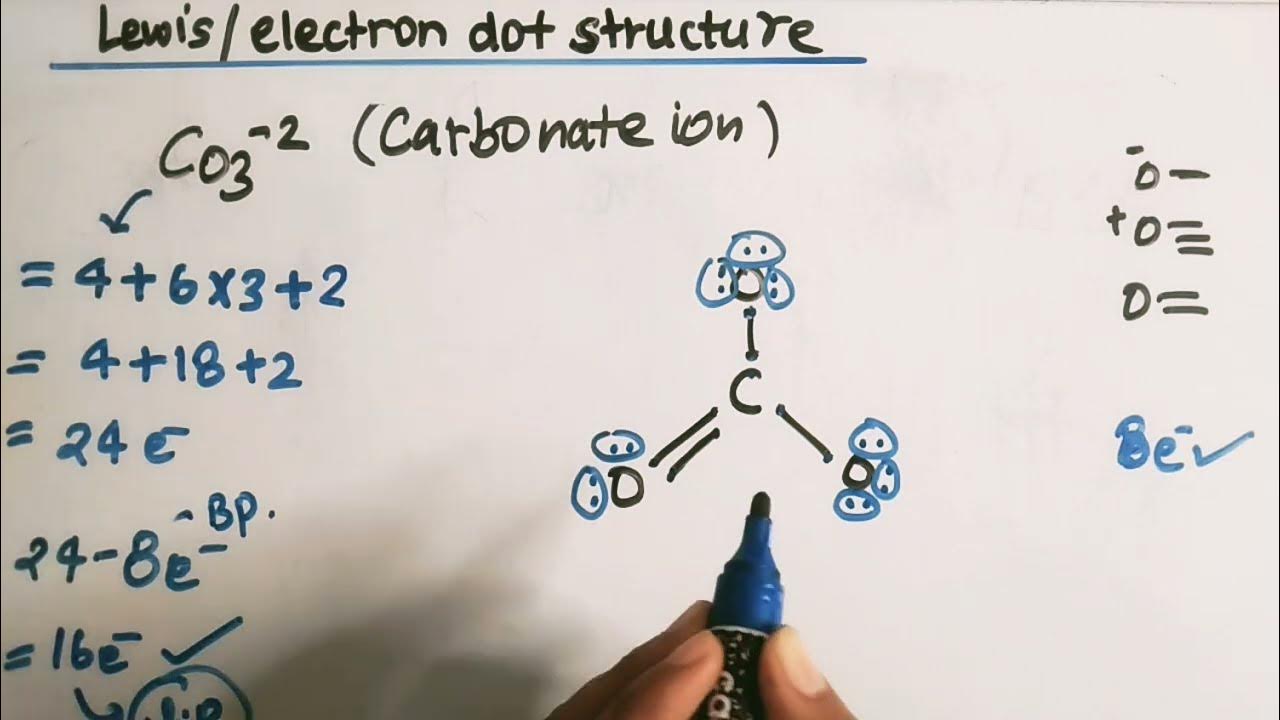 Lewis/electron dot structure
CO3⁻² (Carbonate ion)
= 4+6×3+2
= 4+18+2
= 24 e⁻
24-8e⁻ - BP.
= 16e⁻ ✓
l.p
O
C
O
O
⁻O–
⁺O≡
O=
8e⁻✓